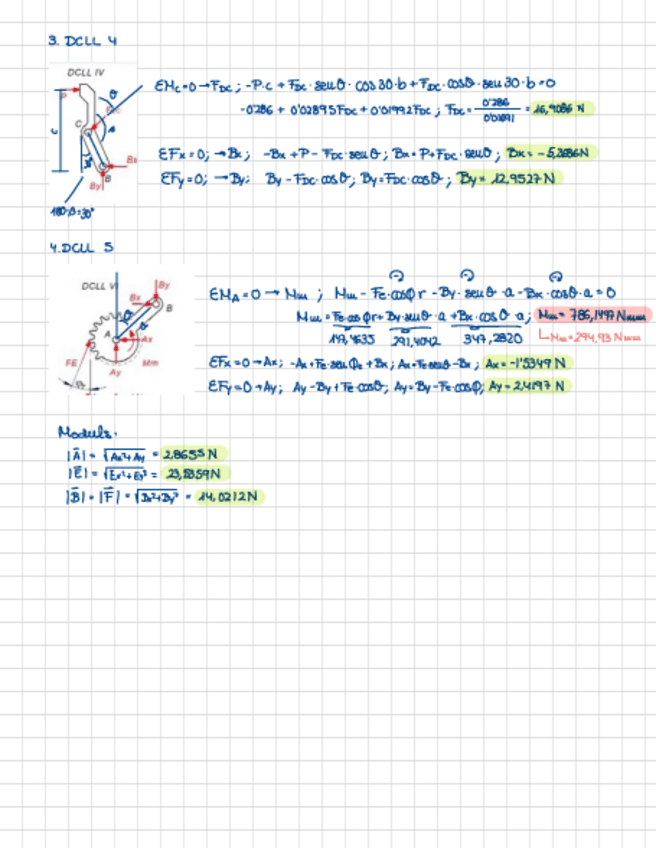 3. DCLL 4
DCLL IV
ΣMc=0→F_DC; -P·c + F_DC·senθ·cos30·b + F_DC·cosθ·sen30·b=0
-0'286 + 0'02895F_DC + 0'01992F_DC; F_DC= 0'286 / = 16,9086 N
ΣFx=0; →Bx; -Bx+P-F_DC·senθ; Bx=P+F_DC·senθ; Bx=-5,3686N
ΣFy=0; →By; By-F_DC·cosθ; By=F_DC·cosθ; By= 12,9527N
C
Bx
By
B
4. DCLL 5
DCLL VI
By
Bx
B
A
Ax
FE
Mm
Ay
ΣM_A=0 → Mm ; Mm - F_E·cosφ r - By·senθ·a - Bx·cosθ·a = 0
Mm=F_E·cosφ r+By·senθ·a+Bx·cosθ·a; Mm= 786,1497 Nmm
147,4635 291,4042 347,2820
Mm=294,93 Nmm
ΣFx=0→Ax; -Ax+F_E·senφ+Bx; Ax=F_E·senθ-Bx; Ax=-1'5349 N
ΣFy=0→Ay; Ay-By+F_E·cosθ; Ay=By-F_E·cosφ; Ay=2,4197 N
Moduls:
|A|= √Ax²+Ay = 2,8655 N
|E|= √Ex²+Ey² = 23,5359N
|B|=|F|=√Bx²+By² = 14,0212N